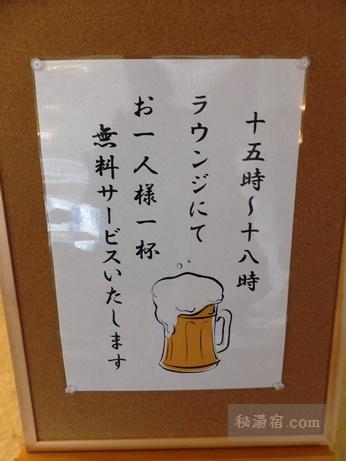 十五時~十八時
ラウンジにて
お一人様一杯
無料サービスいたします
秘湯宿.com